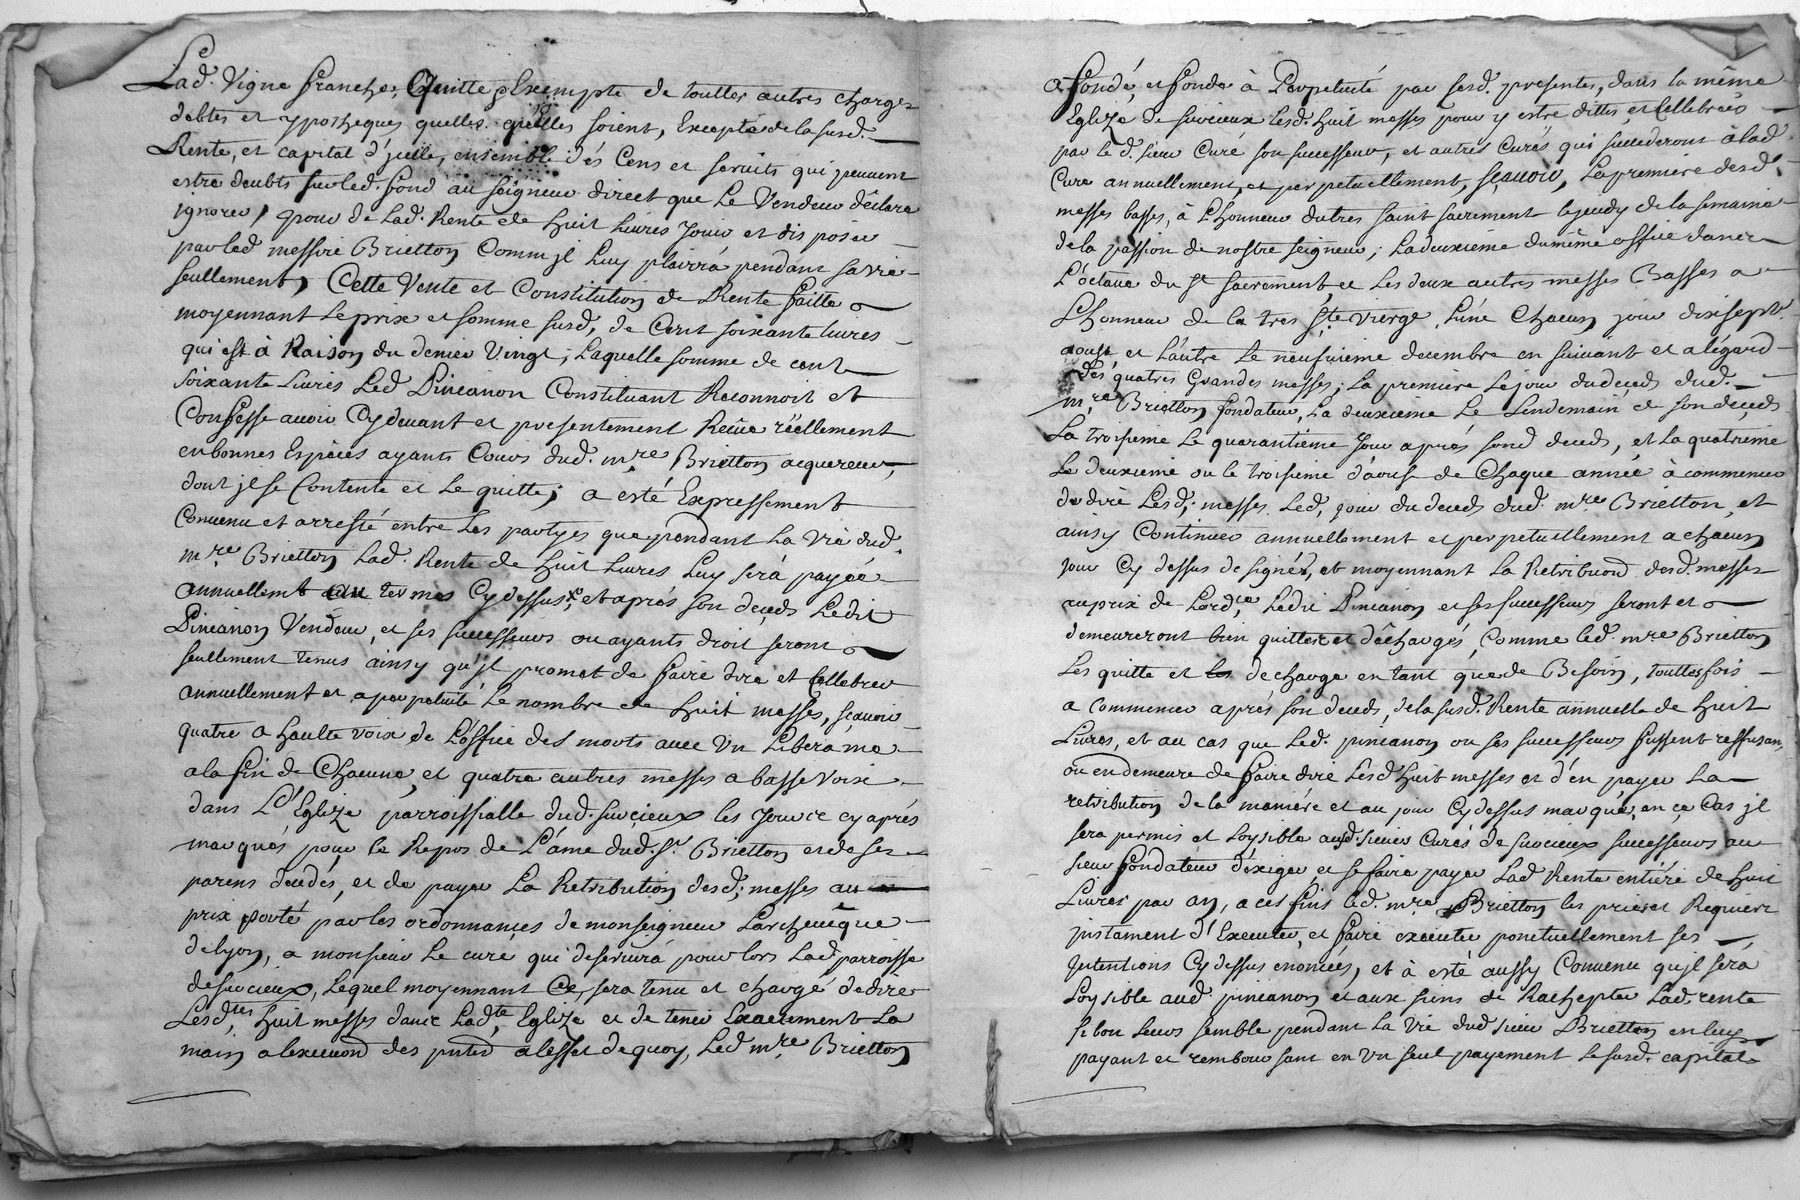 Lad. Vigne franche, Quitte & Exempte de touttes autres charges
debtes et ypotheques quelles quelles soient, Excepté de la susd.
Rente, et capital d'jcelle, ensemble dés Cens et servits qui peuvent
estre deubts sur led. fond au seigneur direct que Le Vendeur déclare
ignorer, pour de Lad. Rente de huit livres Jouir et disposer
par led messire Brietton Comm jl Luy plairrà pendant sa vie
seullement, Cette Vente et Constitution de Rente faitte
moyennant Le prix et somme susd, de Cent soixante livres
qui est à Raison du denier Vingt; Laquelle somme de cent
soixante Livres Led Pineanon Constituant Reconnoit et
Confesse auoir Cy deuant et presentement Reçüe réellement
en bonnes Espèces ayants Cours dud. mre Brietton acquereur,
dont jl se Contente et Le quitte; a esté Expressement
Conuenu et arresté entre Les partyes que pendant La Vie dud.
mre Brietton Lad. Rente de huit Liures Luy serà payée
annuellemt au termes Cy dessus, et aprés son deceds Ledit
Pineanon Vendeur, et ses successeurs ou ayants droit seront
seullement tenus ainsy qu'jl promet de faire dire et Cellebrer
annuellement et a perpetuité Le nombre de huit messes, scauoir
quatre a haulte voix de L'office des morts auec Vn Libera me
a la fin de Chacune, et quatre autres messes a basse Voix
dans L'Eglize parroissialle dud. Suscieux les Jours cy aprés
marqués pour le Repos de L'ame dud. sr. Brietton et de ses
parens decedés, et de payer La Retribution desd; messes au
prix porté par les ordonnances de monseigneur Larcheuêque
de Lyon, a monsieur Le curé qui deseruirà pour lors Lad parroisse
de suscieux, Lequel moyennant Ce, sera tenu et chargé de dire
Lesdtes huit messes dans Ladte Eglize et de tenir Exactement La
main a lexecuond des pntes a leffet de quoy, Led mre Brietton
a fondé, et fonde à Perpetuité par sesd. presentes, dans la même
Eglize de suscieux lesd. huit messes pour y estre dittes et Cellebrées
par le d. sieur Curé son successeur, et autres Curés qui succederont à lad.
Cure annuellement, et perpetuellement, sçauoir, La premiere desd.
messes basses, à L'honneur du tres saint sacrement le jeudy de la semaine
de la passion de nostre seigneur; La deuxieme du même office dans
L'octaue du st sacrement et Les deux autres messes Basses a
L'honneur de la tres ste Vierge, L'une Chacun jour dixsept.
aoust et L'autre Le neufuieme decembre en suiuant et a légard
des quatres Grandes messes; La premiere Le jour du deceds dud.
mre Brietton fondateur, La deuxieme Le Lendemain de son deceds
La troisieme Le quarantiéme Jour aprés sond deceds, et La quatrieme
Le deuxieme ou le troisieme d'aoust de Chaque année à commencer
de dire Lesd; messes Led, jour du deceds dud. mre Brietton, et
ainsy Continuer annuellement et perpetuellement a chacun
jour Cy dessus designés, et moyennant La Retribuond desd. messes
au prix de Lordce, Ledit Pineanon et ses successeurs seront et
demeureront bien quittes et déchargés, Comme led. mre Brietton
Les quitte et décharge en tant que de Besoin, touttesfois
a Commencer aprés son deceds, de la susd. Rente annuelle de huit
Liures, et au cas que Led. pineanon ou ses successeurs fussent reffusans
ou en demeure de faire dire Lesd huit messes et d'en payer La
retribution de la maniére et au jour Cy dessus marqués, en ce Cas jl
sera permis et Loysible ausd. sieurs Curés de suscieux successeurs au
sieur fondateur d'exiger et se faire payer Lad Rente entiére de huit
Livres par an, a ces fins led. mre Brietton les prie et Requiert
justament d'Executer, et faire executer ponctuellement ses
Jntentions Cy dessus enoncées, et à esté aussy Conuenu qu'jl serà
Loysible aud pineanon et aux siens de Rachepter Lad. rente
si bon Leurs semble pendant La Vie dud sieur Brietton en luy
payant et remboursant en Vn seul payement Le susd. capital